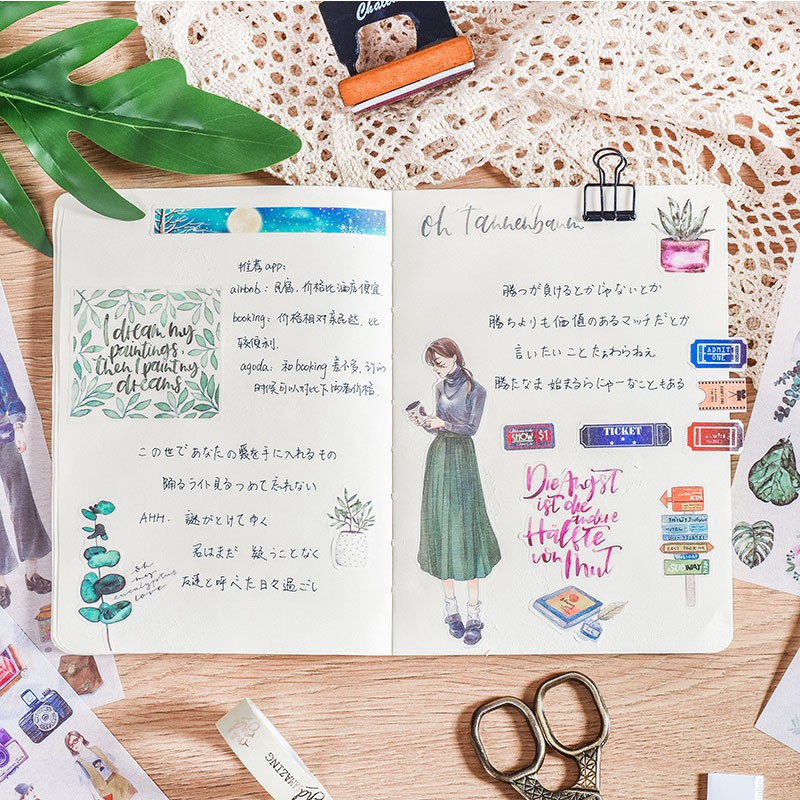 oh Tannenbaum
推荐app:
airbnb: 民宿,价格比酒店便宜
booking: 价格相对亲民些、比
较便利.
agoda: 和booking差不多,订的
时候可以对比下两者价格.
I dream my
paintings,
then I paint my
dreams
この世であなたの愛を手に入れるもの
踊るライト見るつめて忘れない
AHH. 謎がとけてゆく
君はまだ 疑うことなく
友達と呼べた日々過ごし
oh
my
eucalyptus
love
勝つが負けるとかじゃないとか
勝ちよりも価値のあるマッチだとか
言いたいことたぁわらねえ
勝たなま 始まるらにゃーなこともある
ADMIT
ONE
SHOW $1
TICKET
Die Angst
ist die
andere
Hälfte
von Mut
EAST PARK
SUBWAY
AMAZING